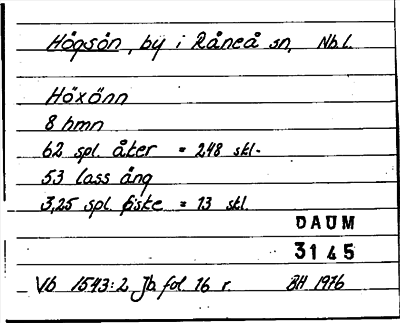 Högsön, by i Råneå sn, Nb.l.
Höxönn
8 hmn
62 spl. åker = 248 skl.
53 lass äng
3,25 spl. fiske = 13 skl.
DAUM
3145
Vb 1543:2 Jb fol. 16 r. BH 1976